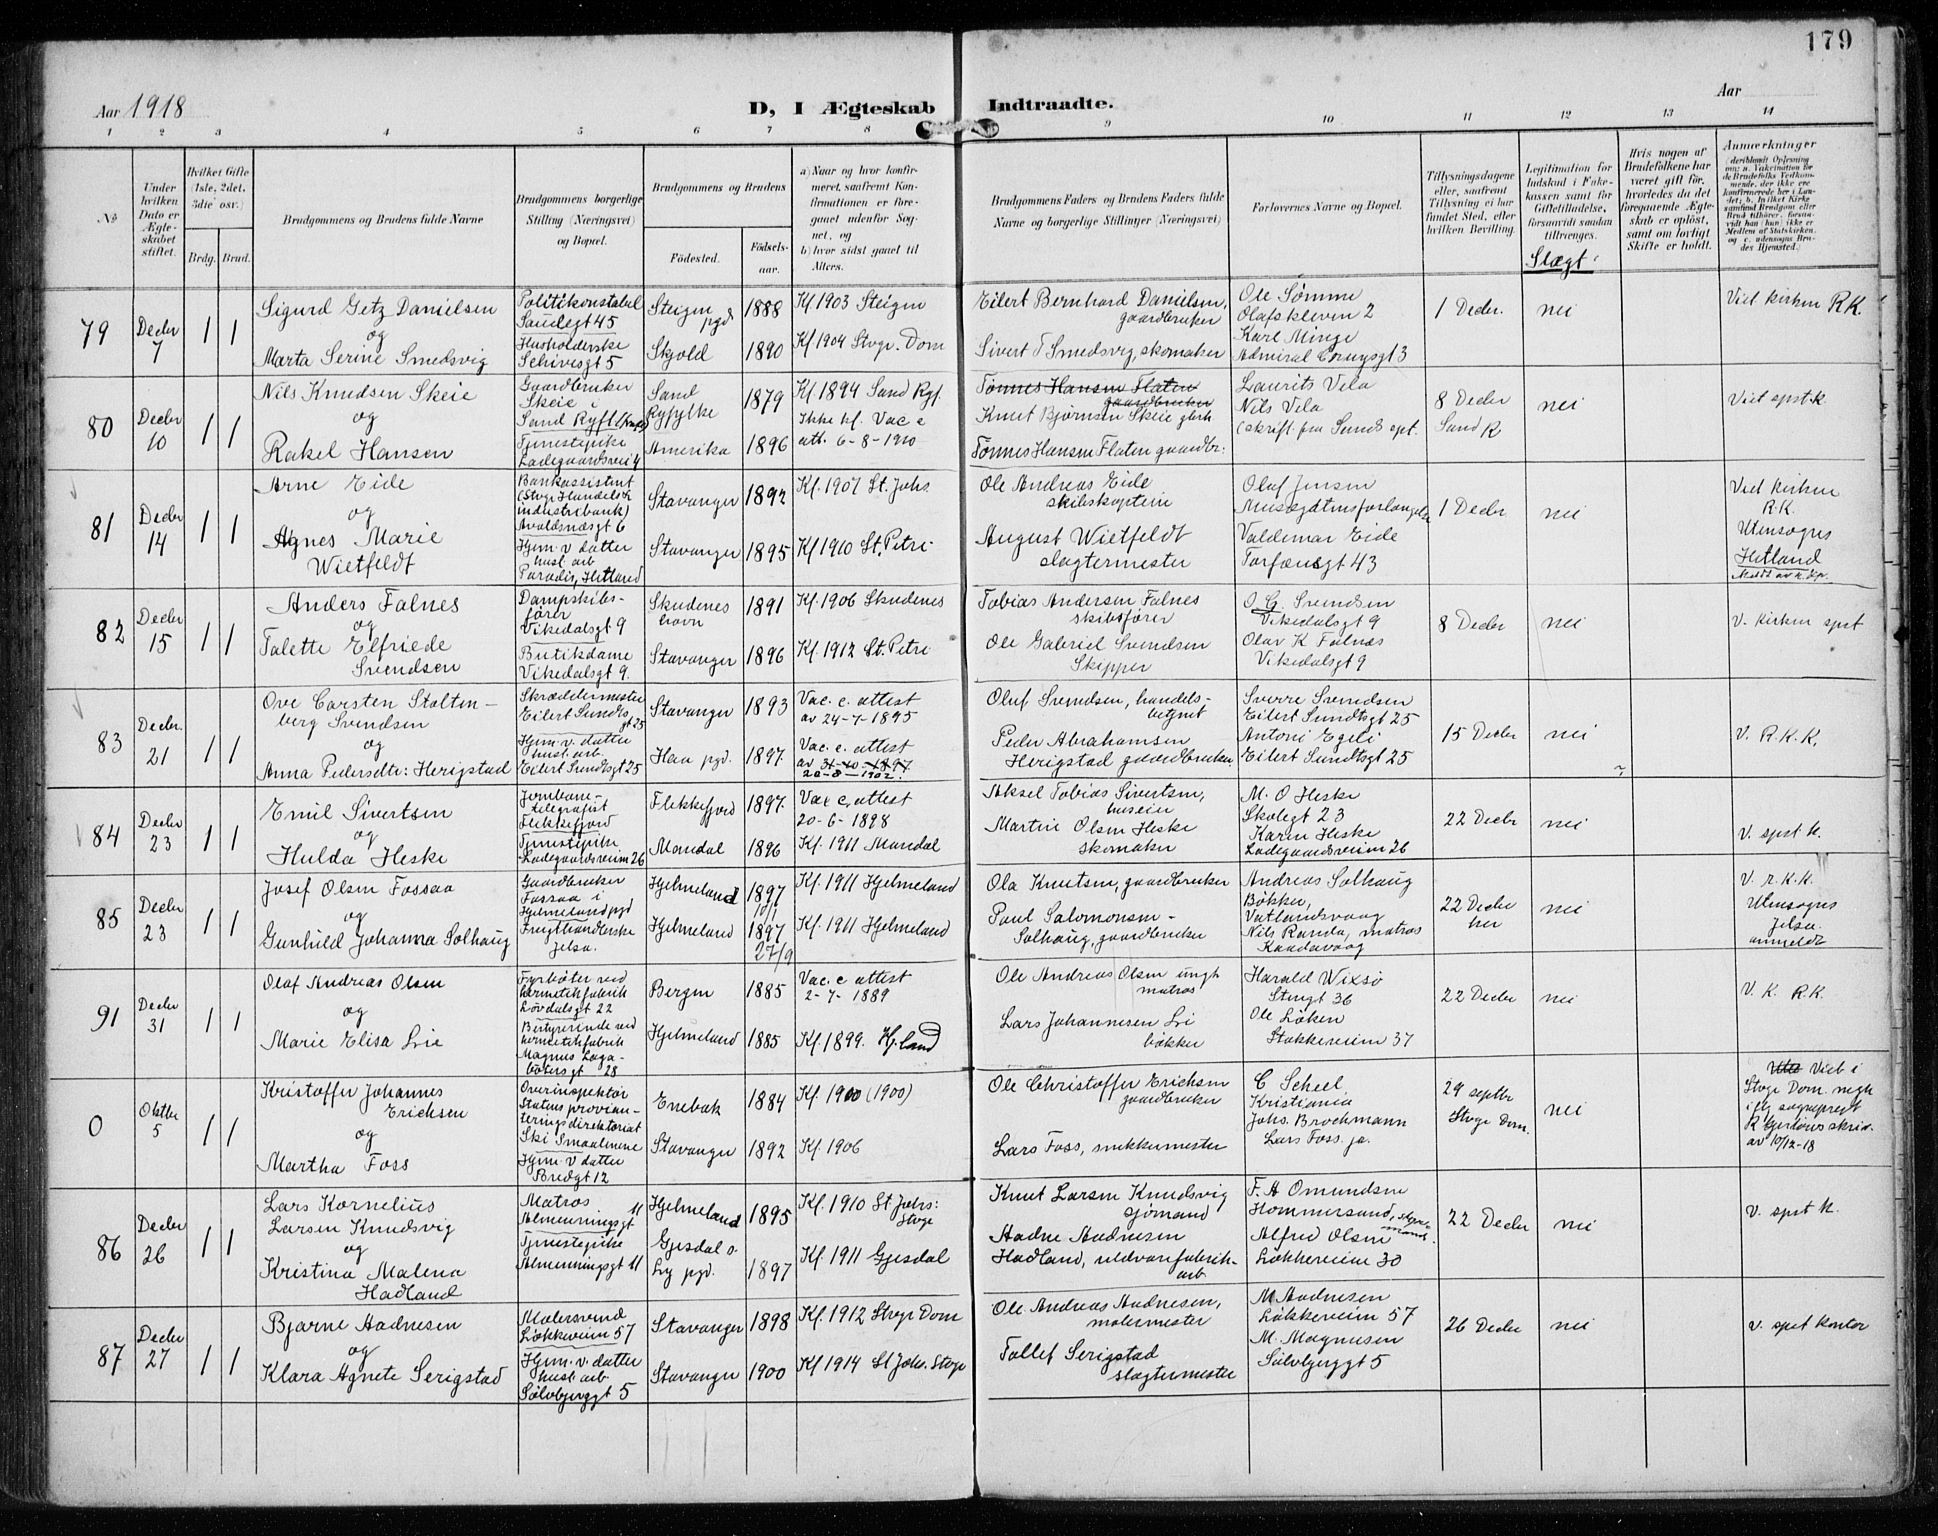 179
Aar 1918
D, I Ægteskab Indtraadte.
Aar
1 2 3 4 5 6 7 8 9 10 11 12 13 14
No
Under hvilken Dato er Ægteskabet stiftet.
Hvilket Gifte (1ste, 2det, 3die osv.)
Brdg. Brud.
Brudgommens og Brudens fulde Navne
Brudgommens borgerlige Stilling (Næringsvei) og Bopæl.
Brudgommens og Brudens
Fødested.
Fødselsaar.
a) Naar og hvor konfirmeret, saafremt Konfirmationen er foregaaet udenfor Sognet, og
b) hvor sidst gaaet til Alters.
Brudgommens Faders og Brudens Faders fulde Navne og borgerlige Stillinger (Næringsvei)
Forlovernes Navne og Bopæl.
Tillysningsdagene eller, saafremt Tillysning ei har fundet Sted, efter hvilken Bevilling.
Legitimation for Indskud i Enkekassen samt for Giftetilladelse, forsaavidt saadan tiltrænges.
Slægt?
Hvis nogen af Brudefolkene har været gift før, hvorledes da det foregaaende Ægteskab er opløst, samt om lovligt Skifte er holdt.
Anmerkninger
79
Decbr 7
1 1
Sigurd Getz Danielsen
og
Marta Serine Smedsvig
Politikonstabel
Saudegt 45
Husholderske
Schivesgt 5
Steigen pgd
Skjold
1888
1890
Kf 1903 Steigen
Kf 1904 Stvgr. Dom
Eilert Bernhard Danielsen, gaardbruker
Sivert T Smedsvig, skomaker
Ole Sømme
Olafskleven 2
Karl Minge
Admiral Cornysgt 3
1 Decbr.
nei
Viet kirken R.K.
80
Decbr 10
1 1
Nils Knudsen Skeie
og
Rakel Hansen
Gaardbruker
Skeie i
Sand Ryf
Tjenestepike
Ladegaardsvei 4
Sand
Ryfylke
Amerika
1879
1896
Kf 1894 Sand Ryf.
Ikke kf. Vac e
att. 6-8-1910
Tønnes Hansen Flaten
gaardbruker
Knut Bjørnsen Skeie gbrk
Tønnes Hansen Flaten gaardbr:
Laurits Vela
Nils Vela
(skrift. fra Sands spt.
8 Decbr
Sand R
nei
Viet spst. k.
81
Decbr 14
1 1
Arne Eide
og
Agnes Marie
Wietfeldt
Bankassistent
(Stvgr Handels &
industribank)
Avaldsnæsgt 6
Hjem. v datter
hust arb
Paradis, Hetland
Stavanger
Stavanger
1892
1895
Kf. 1907 St. Johs.
Kf 1910 St. Petri
Ole Andreas Eide
skibskaptein
August Wietfeldt
slagtermester
Olaf Jensen
Musegatensforlængelse
Valdemar Eide
Torfæusgt 43
1 Decbr
nei
Viet kirken
R.K.
Utensogns
Hetland
82
Decbr 15
1 1
Anders Falnes
og
Talette Elfriede
Svendsen
Dampskibs-
fører
Vikedalsgt 9
Butikdame
Vikedalsgt 9.
Skudenes
havn
Stavanger
1891
1896
Kf. 1906 Skudenes
Kf. 1912 St. Petri
Tobias Andersen Falnes
skibsfører
Ole Gabriel Svendsen
Skipper
O. G. Svendsen
Vikedalsgt 9
Olav K Falnæs
Vikedalsgt 9
8 Decbr
nei
V. kirken spst
83
Decbr. 21
1 1
Ove Carsten Stolten-
berg Svendsen
og
Anna Pedersdtr: Herigstad
Skræddermester
Eilert Sundts
gt 25
Hjem. v. datter
hust. arb.
Eilert Sundtsgt 25
Stavanger
Haa pgd.
1893
1897.
Vac. c. attest
av 24-7-1895
Vac. c. attest
av 31-10-1897
20-8-1902.
Oluf Svendsen, handels-
betjent
Peder Abrahamsen
Herigstad gaardbruker
Sverre Svendsen
Eilert Sundtsgt 25
Antoni Egeli
Eilert Sundtsgt 25
15 Decbr
nei
V. R.K.K.
84
Decbr 23
1 1
Emil Sivertsen
og
Hulda Heske
Jernbane-
telegrafist
Flekkefjord
Tjenestepike
Ladegaardsveien 26
Flekkefjord
Mandal
1897.
1896
Vac c. attest
20-6-1898
Kf. 1911 Mandal
Aksel Tobias Sivertsen,
huseier
Martin Olsen Heske
skomaker
M. O Heske
Skolegt 23
Karen Heske
Ladegaardsveien 26
22 Decbr
nei
V. spst k.
85
Decbr 23
1 1
Josef Olsen Fossaa
og
Gunhild Johanna Solhaug
Gaardbruker
Fossaa i
Hjelmeland pgd
Frugthandlerske
Jelsa.
Hjelmeland
Hjelmeland
1897
10/1
1897
27/9
Kf. 1911 Hjelmeland
Kf. 1911 Hjelmeland
Ola Knutsen, gaardbruker
Paul Salomonsen-
Solhaug, gaardbruker
Andreas Solhaug
Bøkker,
Vatlandsvaag
Nils Randa, matros
Kaadavaag
22 Decbr
her
nei
V. r.K.K.
Utensogns
Jelsa.
anmeldt
91
Decbr 31
1 1
Olaf Andreas Olsen
og
Marie Elisa Lie
Fyrbøter ved
hermetikfabrik
Løvdalsgt 22
Bestyrerinde ved
hermetikfabrik
Magnus Laga-
bøtersgt 28
Bergen
Hjelmeland
1885
1885
Vac. c attest
2-7-1889
Kf. 1899. Hj.land
Ole Andreas Olsen ungk
matros
Lars Johannesen Li
bøkker
Harald Wixsø
Stengt 36
Ole Løken
Stokkeveien 37
22 Decbr
nei
V. K. R.K.
0
Oktbr 5
1 1
Kristoffer Johannes
Erichsen
og
Martha Foss
Overinspektør
Statens provian-
teringsdirektoriat
Ski Smaalenene
Hjem. v datter
Bredgt 12
Enebak
Stavanger
1884
1892
Kf. 1900 (1900)
Kf. 1906
Ole Christoffer Erichsen
gaardbruker
Lars Foss, snekkermester
C Scheel
Kristiania
Johs. Brochmann
Lars Foss. jr.
29 septbr
Stvgr Dom.
nei
Viet i
Stvgr Dom. megh
iflg sogneprest
R Gjerløws skriv.
av 10/12-18
86
Decbr 26
1 1
Lars Kornelius
Larsen Knudsvig
og
Kristina Malena
Hadland
Matros
Almenningsgt 11
Tjenestepike
Almenningsgt 11
Hjelmeland
Gjesdal o
Ly pgd.
1895
1897
Kf. 1910 St Johs:
Stvgr
Kf. 1911 Gjesdal
Knut Larsen Knudsvig
sjømand
Aadne Aadnesen
Hadland, uldvarefabrik-
arb
F. A Omundsen
Hommersand, styrmand.
Alfred Olsen
Løkkeveien 30
22 Decbr
nei
V. spst K.
87
Decbr 27
1 1
Bjarne Aadnesen
og
Klara Agnete Serigstad
Malersvend
Løkkeveien 57
Hjem. v. datter
hust arb
Sølvbjerggt 5
Stavanger
Stavanger
1898
1900
Kf. 1912 Stvgr Dom
Kf 1914 St Johs. Stvgr
Ole Andreas Aadnesen,
malermester
Tollef Serigstad
slagtermester
M Aadnesen
Løkkeveien 57
M. Magnusen
Sølvbjerggt 5
26 Decbr
nei
V. spst kontor